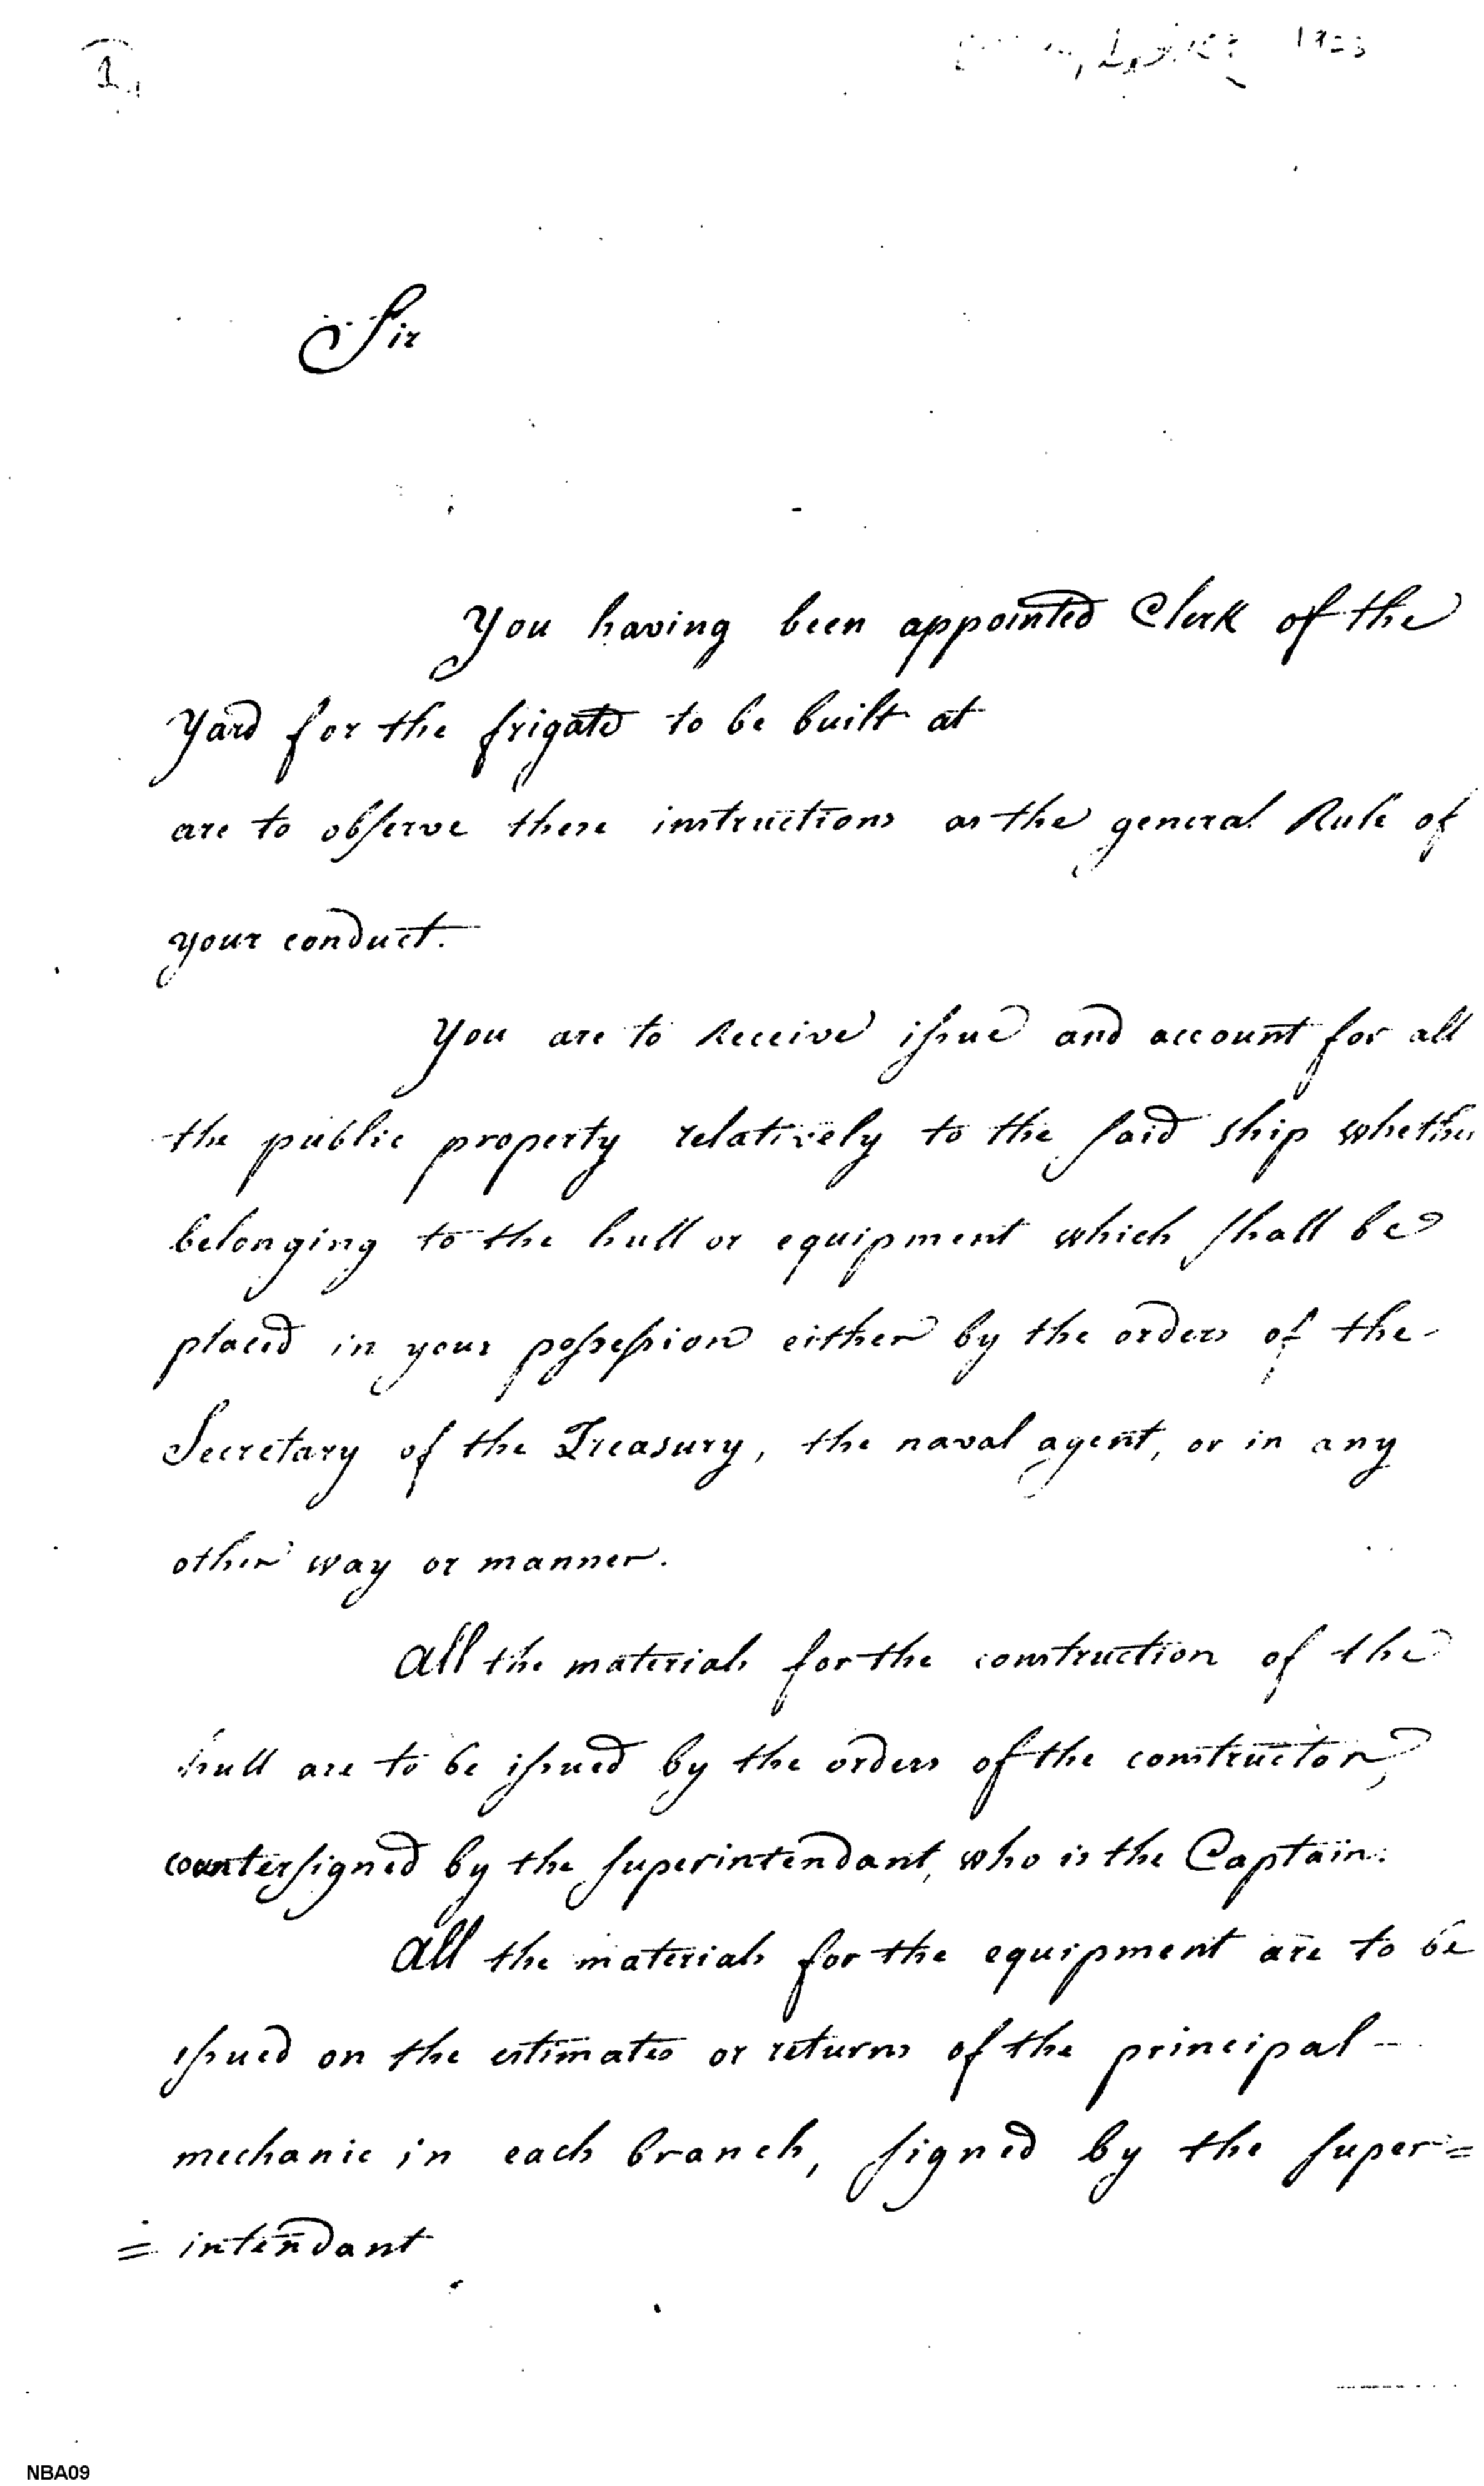 1
Sir
You having been appointed Clerk of the
Yard for the frigate to be built at
are to observe these instructions as the general Rule of
your conduct.
You are to Receive issue and account for all
the public property relatively to the said ship whether
belonging to the hull or equipment which shall be
placed in your possession either by the orders of the
Secretary of the Treasury, the naval agent, or in any
other way or manner.
All the materials for the construction of the
hull are to be issued by the orders of the constructor,
countersigned by the superintendant, who is the Captain.
All the materials for the equipment are to be
issued on the estimates or returns of the principal
mechanic in each branch, signed by the super=
=intendant
NBA09